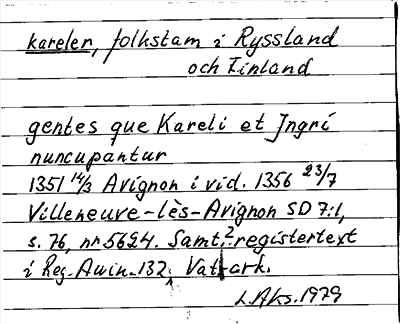 kareler, folkstam i Ryssland
och Finland
gentes que Kareli et Jngri
nuncupantur
1351 14/3 Avignon i vid. 1356 23/7
Villeneuve-lès-Avignon SD 7:1,
s. 76, nr 5694. Samt. 2 registertext
i Reg. Avin. 132, Vat. ark.
L.Aks. 1979